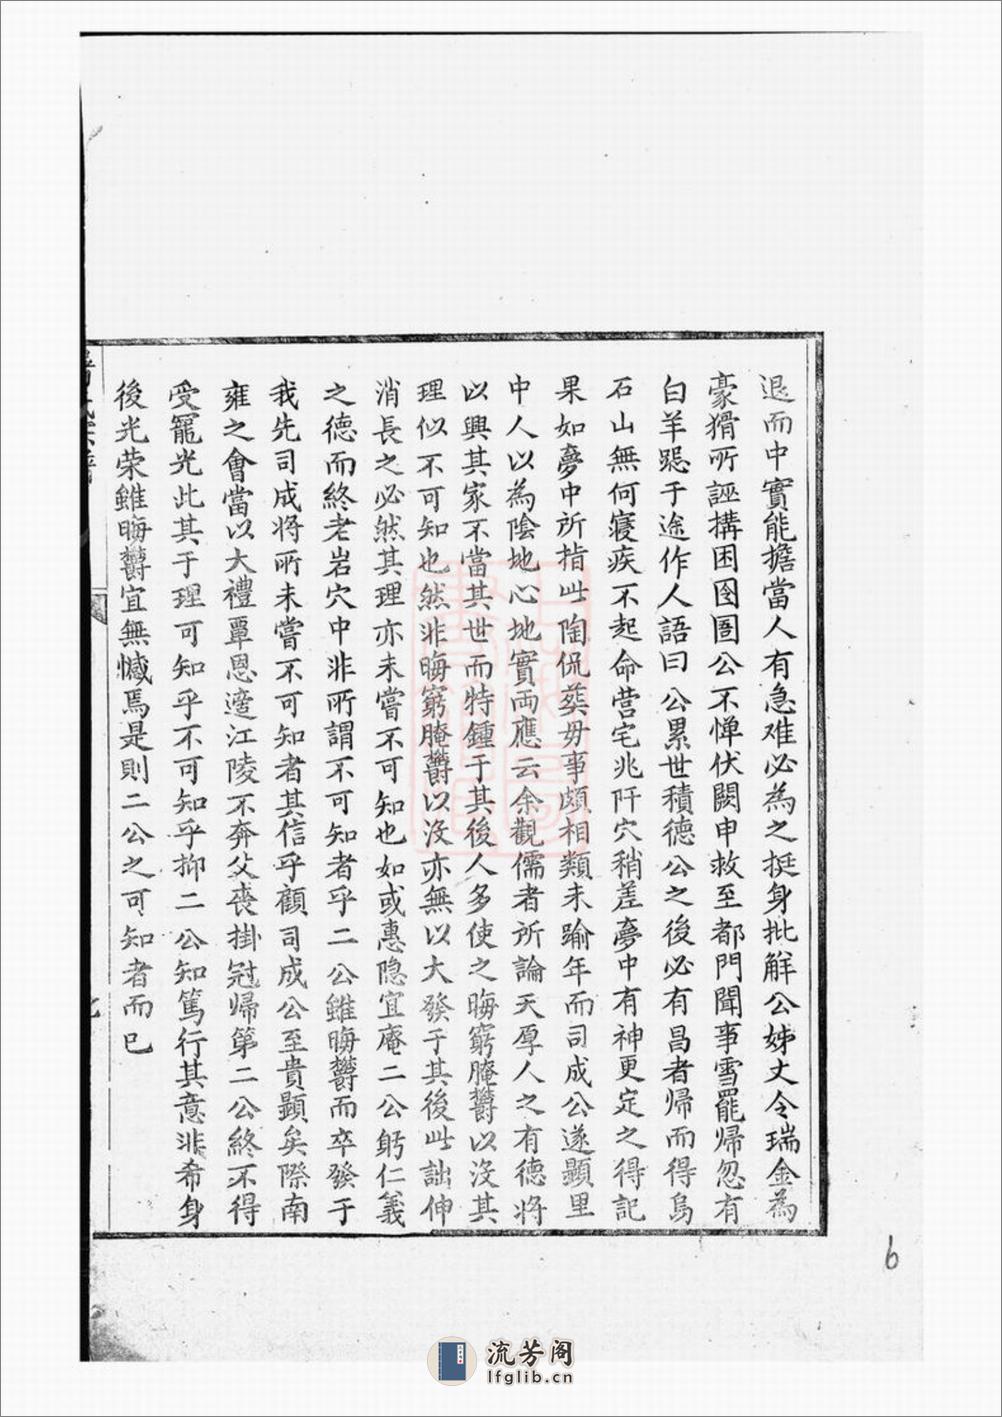 退而中實能擔當人有急难必為之挺身批解公姊丈令瑞金為
豪猾所誣搆困囹圄公不惮伏闕申救至都門聞事雪罷帰忽有
白羊跽于途作人語曰公累世積德公之後必有昌者帰而得烏
石山無何寝疾不起命营宅兆阡穴稍差夢中有神更定之得記
果如夢中所指此陶侃葬毋事頗相類未踰年而司成公遂顯里
中人以為陰地心地實両應云余觀儒者所論天厚人之有德将
以興其家不當其世而特鍾于其後人多使之晦窮腌欝以沒其
理似不可知也然非晦窮腌欝以沒亦無以大發于其後此詘伸
消長之必然其理亦未嘗不可知也如或惠隐宜庵二公躬仁義
之德而終老岩穴中非所謂不可知者乎二公雖晦欝而卒發于
我先司成将所未嘗不可知者其信乎顧司成公至貴顯矣際南
雍之會當以大禮覃恩適江陵不奔父喪掛冠帰第二公終不得
受寵光此其于理可知乎不可知乎抑二公知篤行其意非希身
後光荣雖晦欝宜無憾焉是則二公之可知者而已
6
流芳阁
lfglib.cn